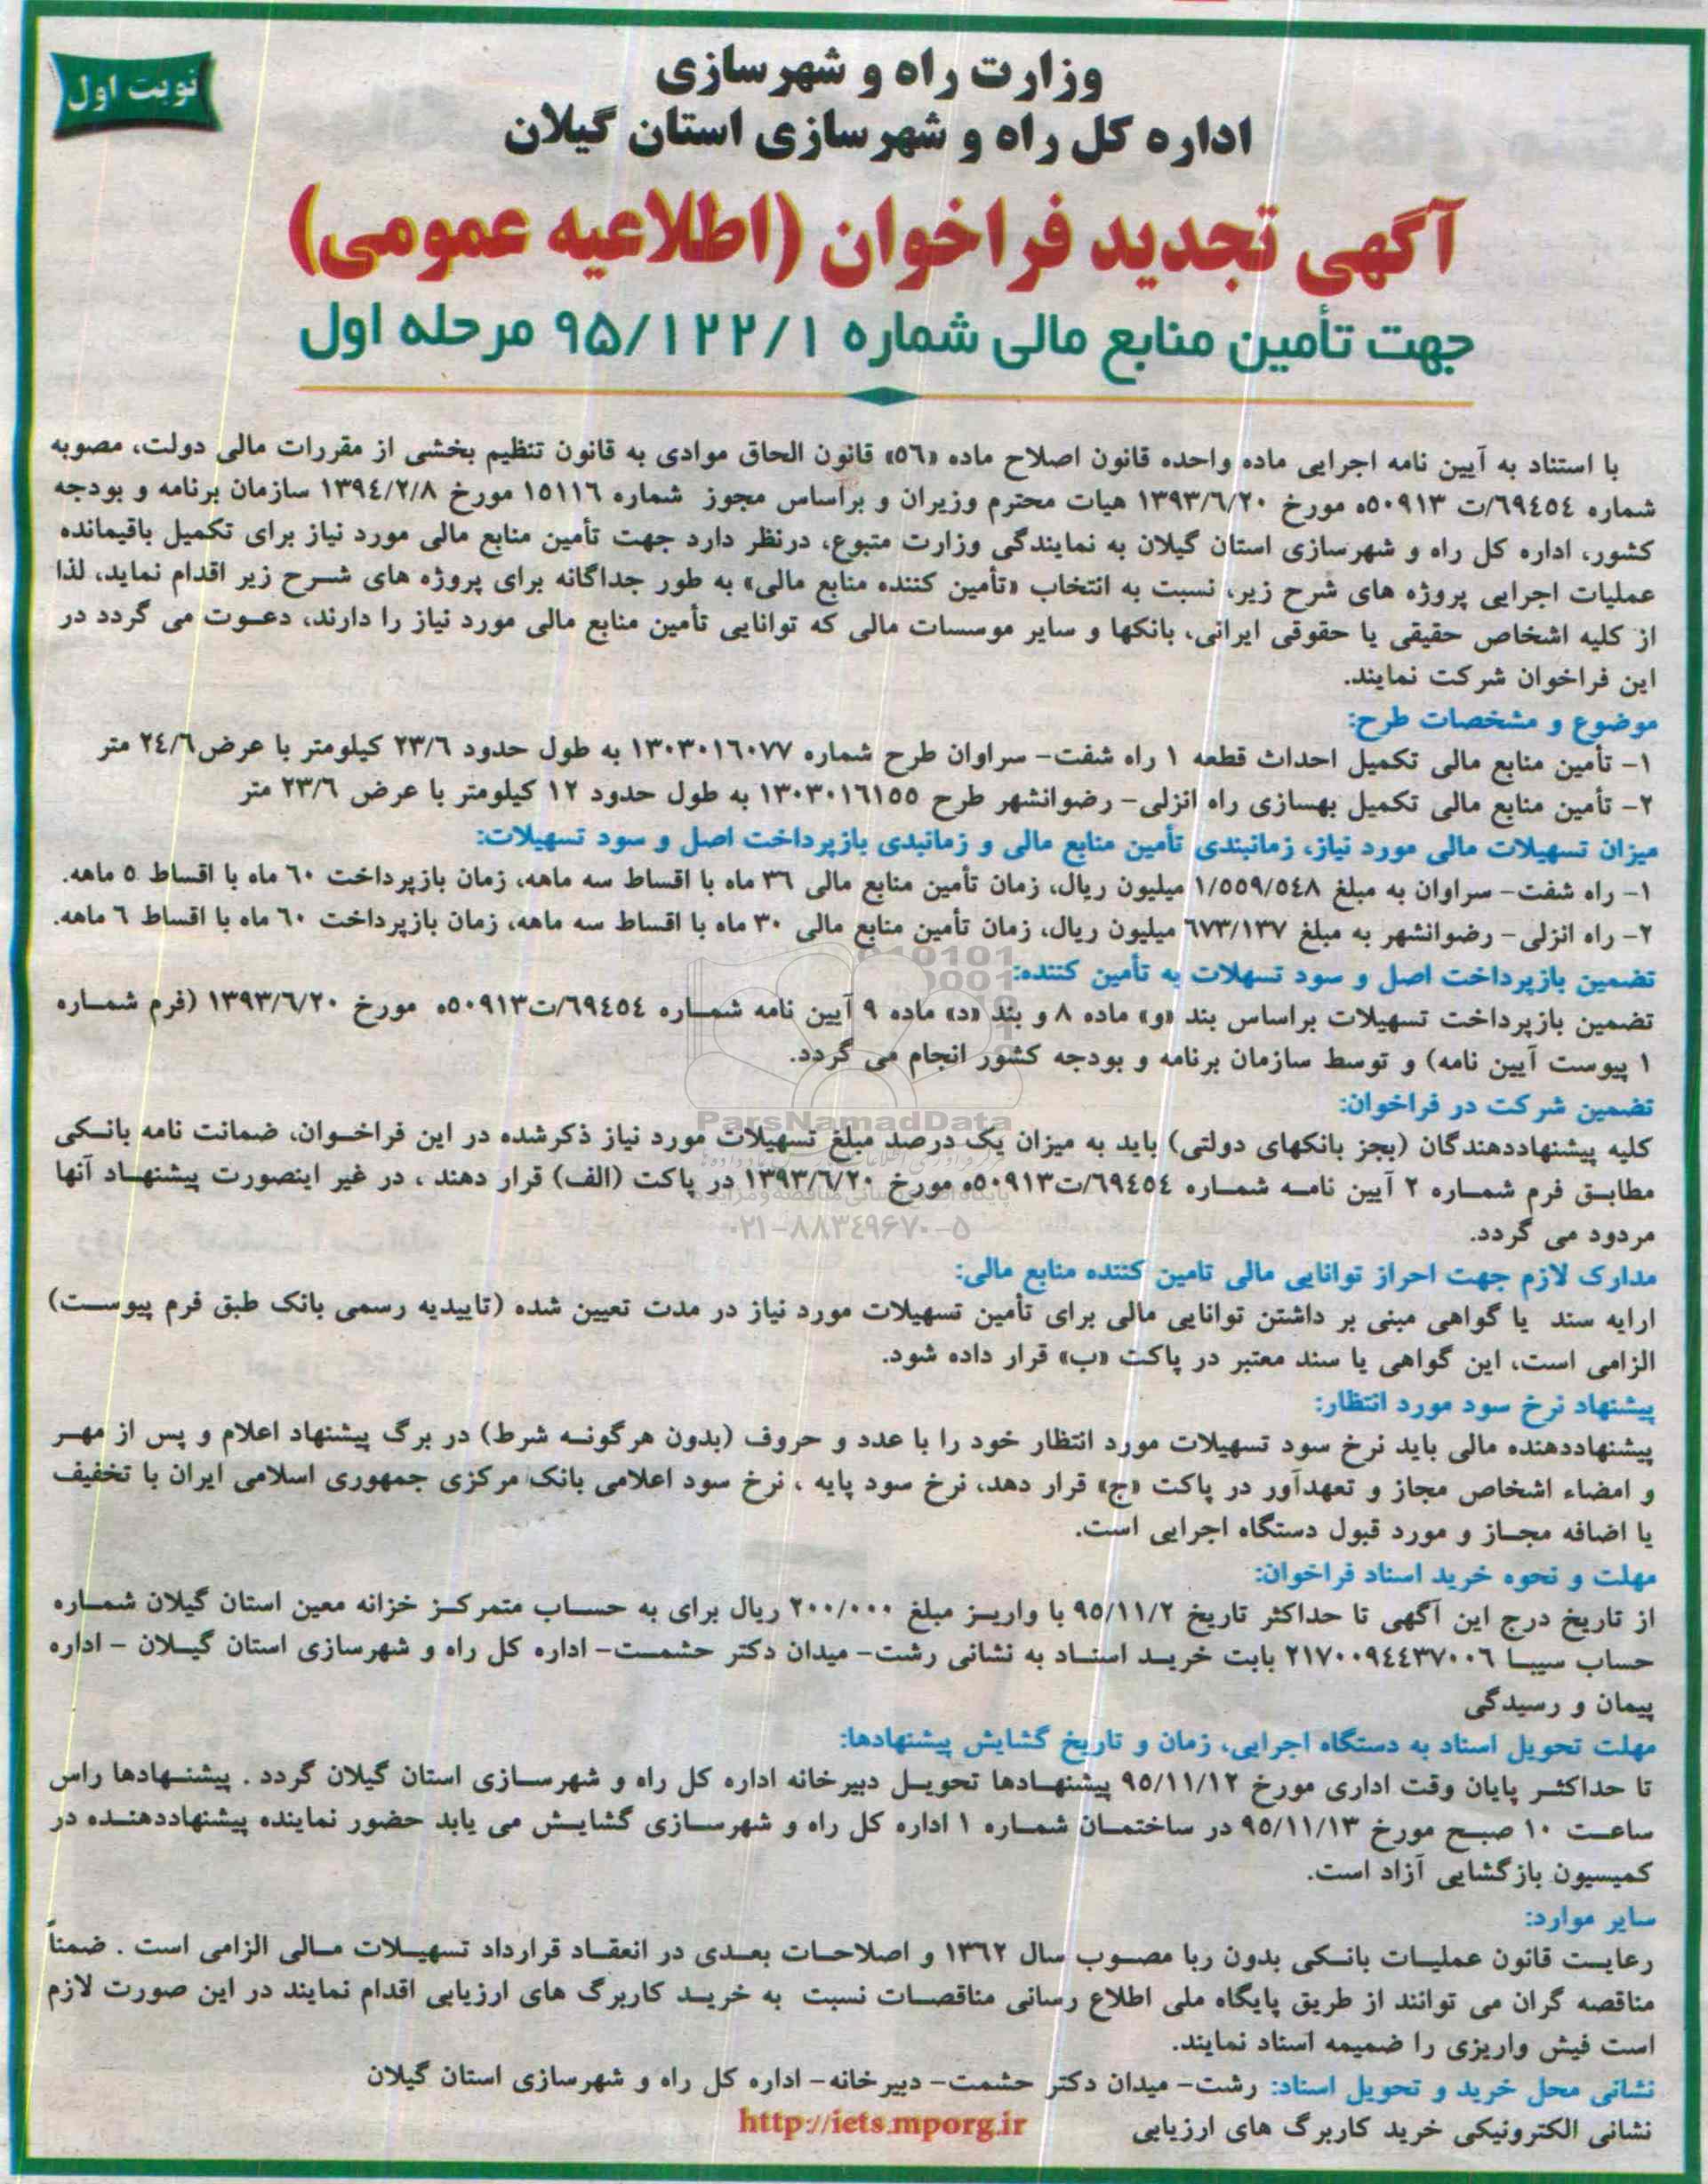 نوبت اول
وزارت راه و شهرسازی
اداره کل راه و شهرسازی استان گیلان
آگهی تجدید فراخوان (اطلاعیه عمومی)
جهت تأمین منابع مالی شماره ۹۵/۱۲۲/۱ مرحله اول
با استناد به آیین نامه اجرایی ماده واحده قانون اصلاح ماده «۵۶» قانون الحاق موادی به قانون تنظیم بخشی از مقررات مالی دولت، مصوبه
شماره ۶۹۴۵۴/ت ۵۰۹۱۳ه مورخ ۱۳۹۳/۶/۲۰ هیات محترم وزیران و براساس مجوز شماره ۱۵۱۱۶ مورخ ۱۳۹۴/۲/۸ سازمان برنامه و بودجه
کشور، اداره کل راه و شهرسازی استان گیلان به نمایندگی وزارت متبوع، درنظر دارد جهت تأمین منابع مالی مورد نیاز برای تکمیل باقیمانده
عملیات اجرایی پروژه های شرح زیر، نسبت به انتخاب «تأمین کننده منابع مالی» به طور جداگانه برای پروژه های شرح زیر اقدام نماید، لذا
از کلیه اشخاص حقیقی یا حقوقی ایرانی، بانکها و سایر موسسات مالی که توانایی تأمین منابع مالی مورد نیاز را دارند، دعوت می گردد در
این فراخوان شرکت نمایند.
موضوع و مشخصات طرح:
۱- تأمین منابع مالی تکمیل احداث قطعه ۱ راه شفت- سراوان طرح شماره ۱۳۰۳۰۱۶۰۷۷ به طول حدود ۲۳/۶ کیلومتر با عرض۲۴/۶ متر
۲- تأمین منابع مالی تکمیل بهسازی راه انزلی- رضوانشهر طرح ۱۳۰۳۰۱۶۱۵۵ به طول حدود ۱۲ کیلومتر با عرض ۲۳/۶ متر
میزان تسهیلات مالی مورد نیاز، زمانبندی تأمین منابع مالی و زمانبدی بازپرداخت اصل و سود تسهیلات:
۱- راه شفت- سراوان به مبلغ ۱/۵۵۹/۵۴۸ میلیون ریال، زمان تأمین منابع مالی ۳۶ ماه با اقساط سه ماهه، زمان بازپرداخت ۶۰ ماه با اقساط ۵ ماهه.
۲- راه انزلی- رضوانشهر به مبلغ ۶۷۳/۱۳۷ میلیون ریال، زمان تأمین منابع مالی ۳۰ ماه با اقساط سه ماهه، زمان بازپرداخت ۶۰ ماه با اقساط ۶ ماهه.
تضمین بازپرداخت اصل و سود تسهلات به تأمین کننده:
تضمین بازپرداخت تسهیلات براساس بند «و» ماده ۸ و بند «د» ماده ۹ آیین نامه شماره ۶۹۴۵۴/ت۵۰۹۱۳ه مورخ ۱۳۹۳/۶/۲۰ (فرم شماره
۱ پیوست آیین نامه) و توسط سازمان برنامه و بودجه کشور انجام می گردد.
ParsNamadData
تضمین شرکت در فراخوان:
کلیه پیشنهاددهندگان (بجز بانکهای دولتی) باید به میزان یک درصد مبلغ تسهیلات مورد نیاز ذکرشده در این فراخوان، ضمانت نامه بانکی
مطابق فرم شماره ۲ آیین نامه شماره ۶۹۴۵۴/ت۵۰۹۱۳ه مورخ ۱۳۹۳/۶/۲۰ در پاکت (الف) قرار دهند ، در غیر اینصورت پیشنهاد آنها
۰۲۱-۸۸۳۴۹۶۷۰-۵
مردود می گردد.
مدارک لازم جهت احراز توانایی مالی تامین کننده منابع مالی:
ارایه سند یا گواهی مبنی بر داشتن توانایی مالی برای تأمین تسهیلات مورد نیاز در مدت تعیین شده (تاییدیه رسمی بانک طبق فرم پیوست)
الزامی است، این گواهی یا سند معتبر در پاکت «ب» قرار داده شود.
پیشنهاد نرخ سود مورد انتظار:
پیشنهاددهنده مالی باید نرخ سود تسهیلات مورد انتظار خود را با عدد و حروف (بدون هرگونه شرط) در برگ پیشنهاد اعلام و پس از مهر
و امضاء اشخاص مجاز و تعهدآور در پاکت «ج» قرار دهد، نرخ سود پایه ، نرخ سود اعلامی بانک مرکزی جمهوری اسلامی ایران با تخفیف
یا اضافه مجاز و مورد قبول دستگاه اجرایی است.
مهلت و نحوه خرید اسناد فراخوان:
از تاریخ درج این آگهی تا حداکثر تاریخ ۹۵/۱۱/۲ با واریز مبلغ ۲۰۰/۰۰۰ ریال برای به حساب متمرکز خزانه معین استان گیلان شماره
حساب سیبا ۲۱۷۰۰۹۴۴۳۷۰۰۶ بابت خرید اسناد به نشانی رشت- میدان دکتر حشمت- اداره کل راه و شهرسازی استان گیلان - اداره
پیمان و رسیدگی
مهلت تحویل اسناد به دستگاه اجرایی، زمان و تاریخ گشایش پیشنهادها:
تا حداکثر پایان وقت اداری مورخ ۹۵/۱۱/۱۲ پیشنهادها تحویل دبیرخانه اداره کل راه و شهرسازی استان گیلان گردد . پیشنهادها راس
ساعت ۱۰ صبح مورخ ۹۵/۱۱/۱۳ در ساختمان شماره ۱ اداره کل راه و شهرسازی گشایش می یابد حضور نماینده پیشنهاددهنده در
کمیسیون بازگشایی آزاد است.
سایر موارد:
رعایت قانون عملیات بانکی بدون ربا مصوب سال ۱۳۶۲ و اصلاحات بعدی در انعقاد قرارداد تسهیلات مالی الزامی است . ضمناً
مناقصه گران می توانند از طریق پایگاه ملی اطلاع رسانی مناقصات نسبت به خرید کاربرگ های ارزیابی اقدام نمایند در این صورت لازم
است فیش واریزی را ضمیمه اسناد نمایند.
نشانی محل خرید و تحویل اسناد: رشت- میدان دکتر حشمت- دبیرخانه- اداره کل راه و شهرسازی استان گیلان
نشانی الکترونیکی خرید کاربرگ های ارزیابی http://iets.mporg.ir